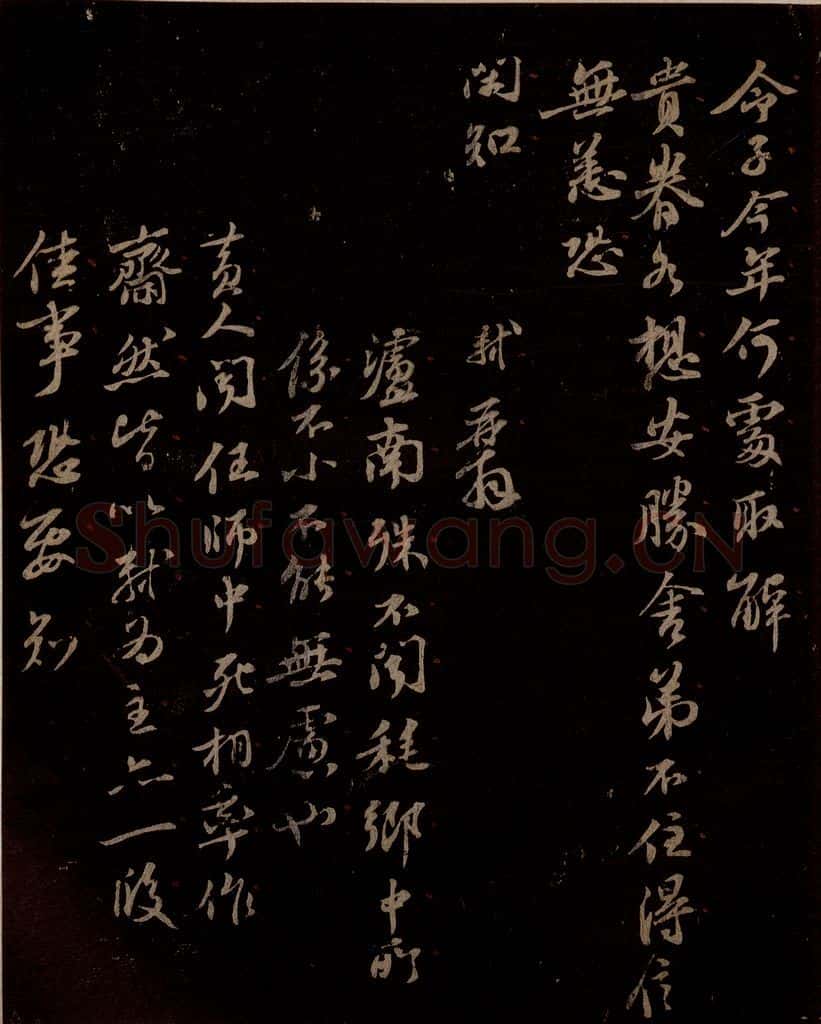 令子今年何處取解
貴眷各想安勝舍弟不住得信
無恙恐
聞知
軾再拜
瀘南殊不聞耗鄉中所
係不小不能無慮也
黃人聞任師中死相率作
齋然皆以軾為主亦一段
佳事恐要知
Shufawang.CN